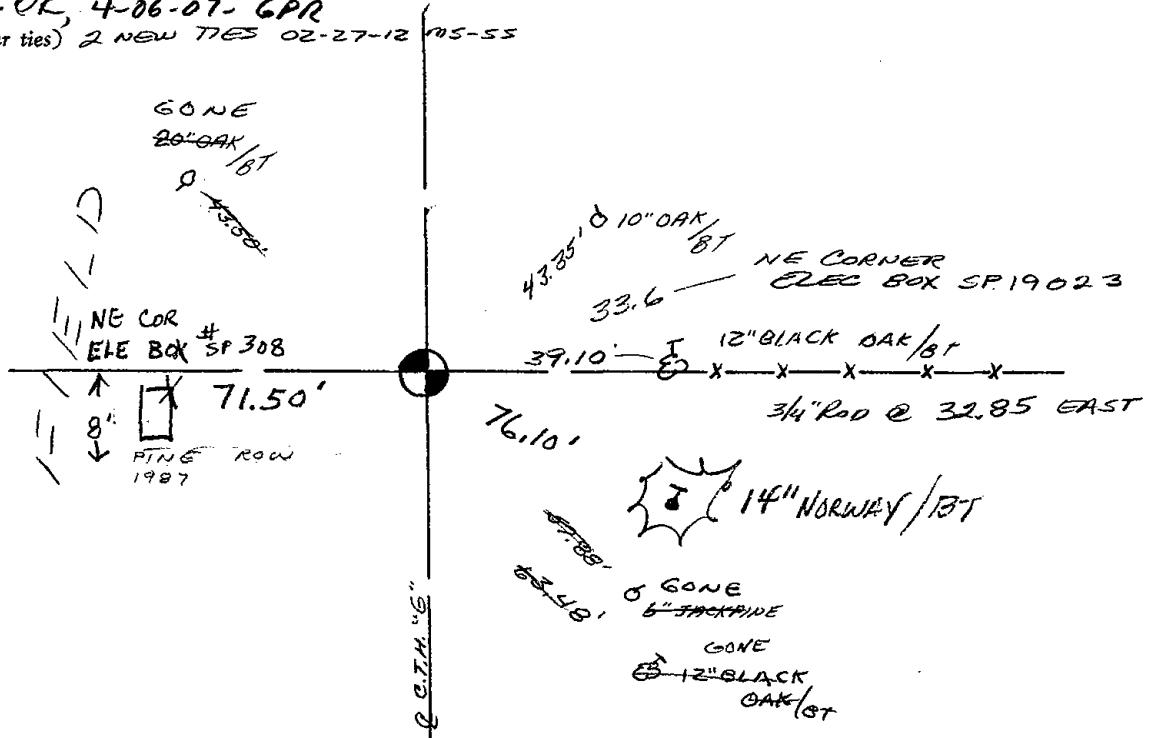 OK, 4-06-07- GPR
er ties) 2 NEW TIES 02-27-12 MS-SS
GONE
20" OAK/BT
43.58'
10" OAK/BT
43.35'
NE CORNER
ELEC BOX SP.19023
33.6
NE COR
ELE BOX # SP 308
39.10'
12" BLACK OAK/BT
71.50'
3/4" ROD @ 32.85 EAST
8'
PINE ROW
1987
76.10'
14" NORWAY/BT
63.48'
GONE
6" JACKPINE
GONE
12" BLACK
OAK/BT
℄ C.T.H. "G"